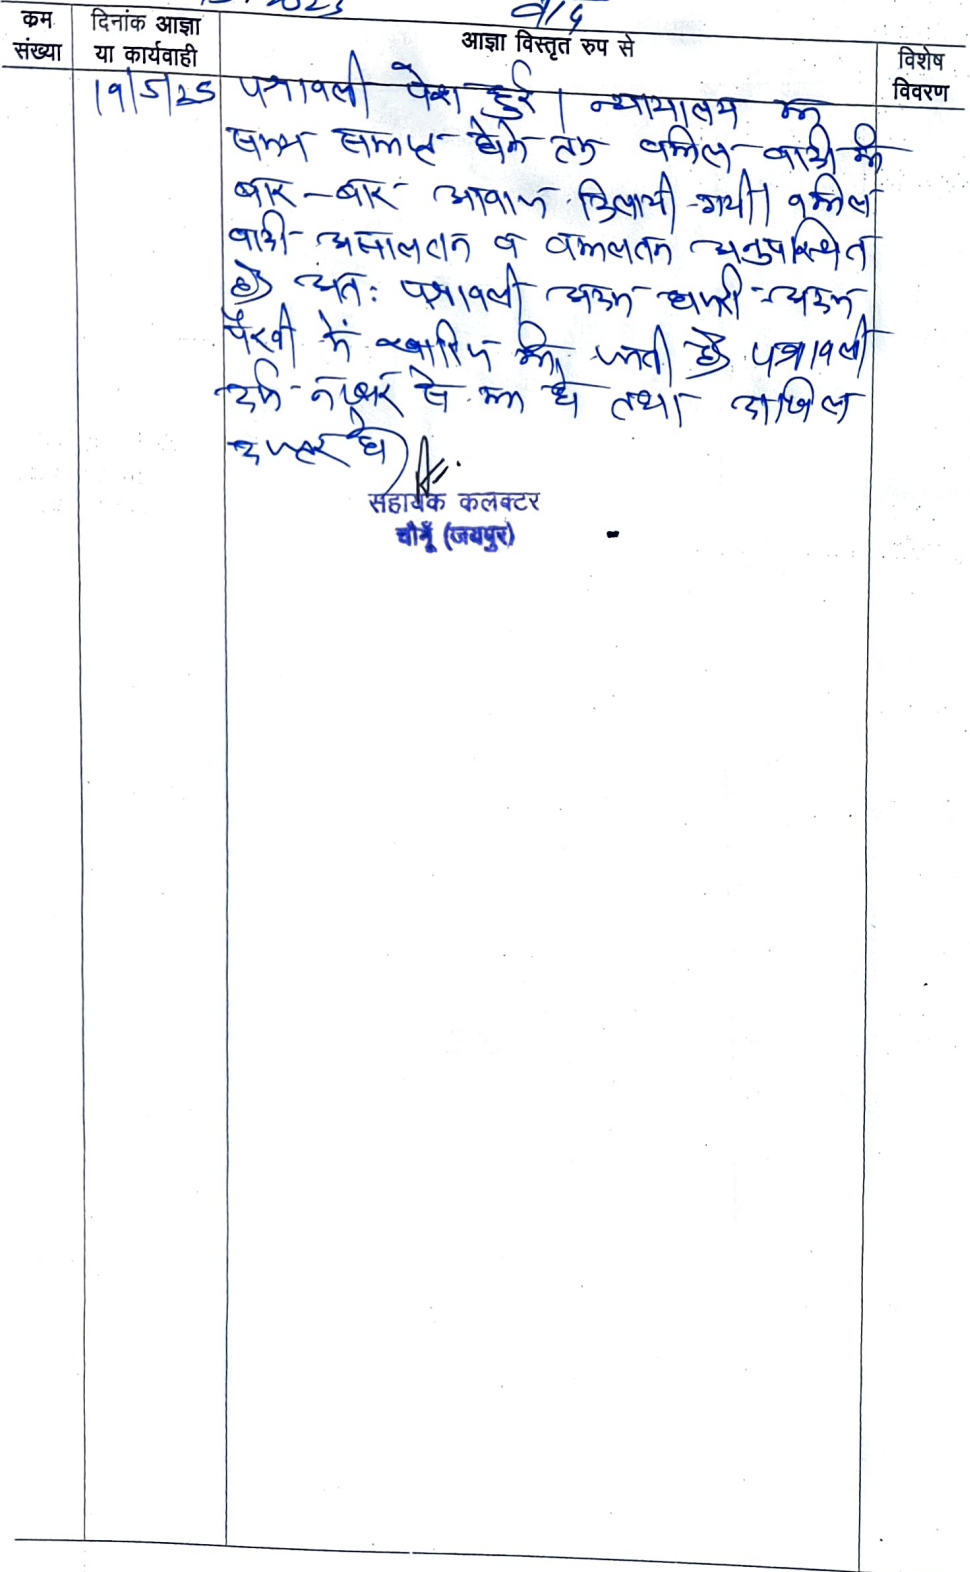 2023
क्रम संख्या
दिनांक आज्ञा या कार्यवाही
आज्ञा विस्तृत रुप से
विशेष विवरण
19/5/25 पत्रावली पेश हुई । न्यायालय का
समय समाप्त होने तक वकील वादी को
बार-बार आवाज दिलायी गयी। वकील
वादी असालतन व वकालतन अनुपस्थित
है अतः पत्रावली अदम हाजरी अदम
पैरवी में खारिज की जाती है पत्रावली
नम्बर से कम हो तथा दाखिल
दफ्तर हो
सहायक कलक्टर
चौमूँ (जयपुर)